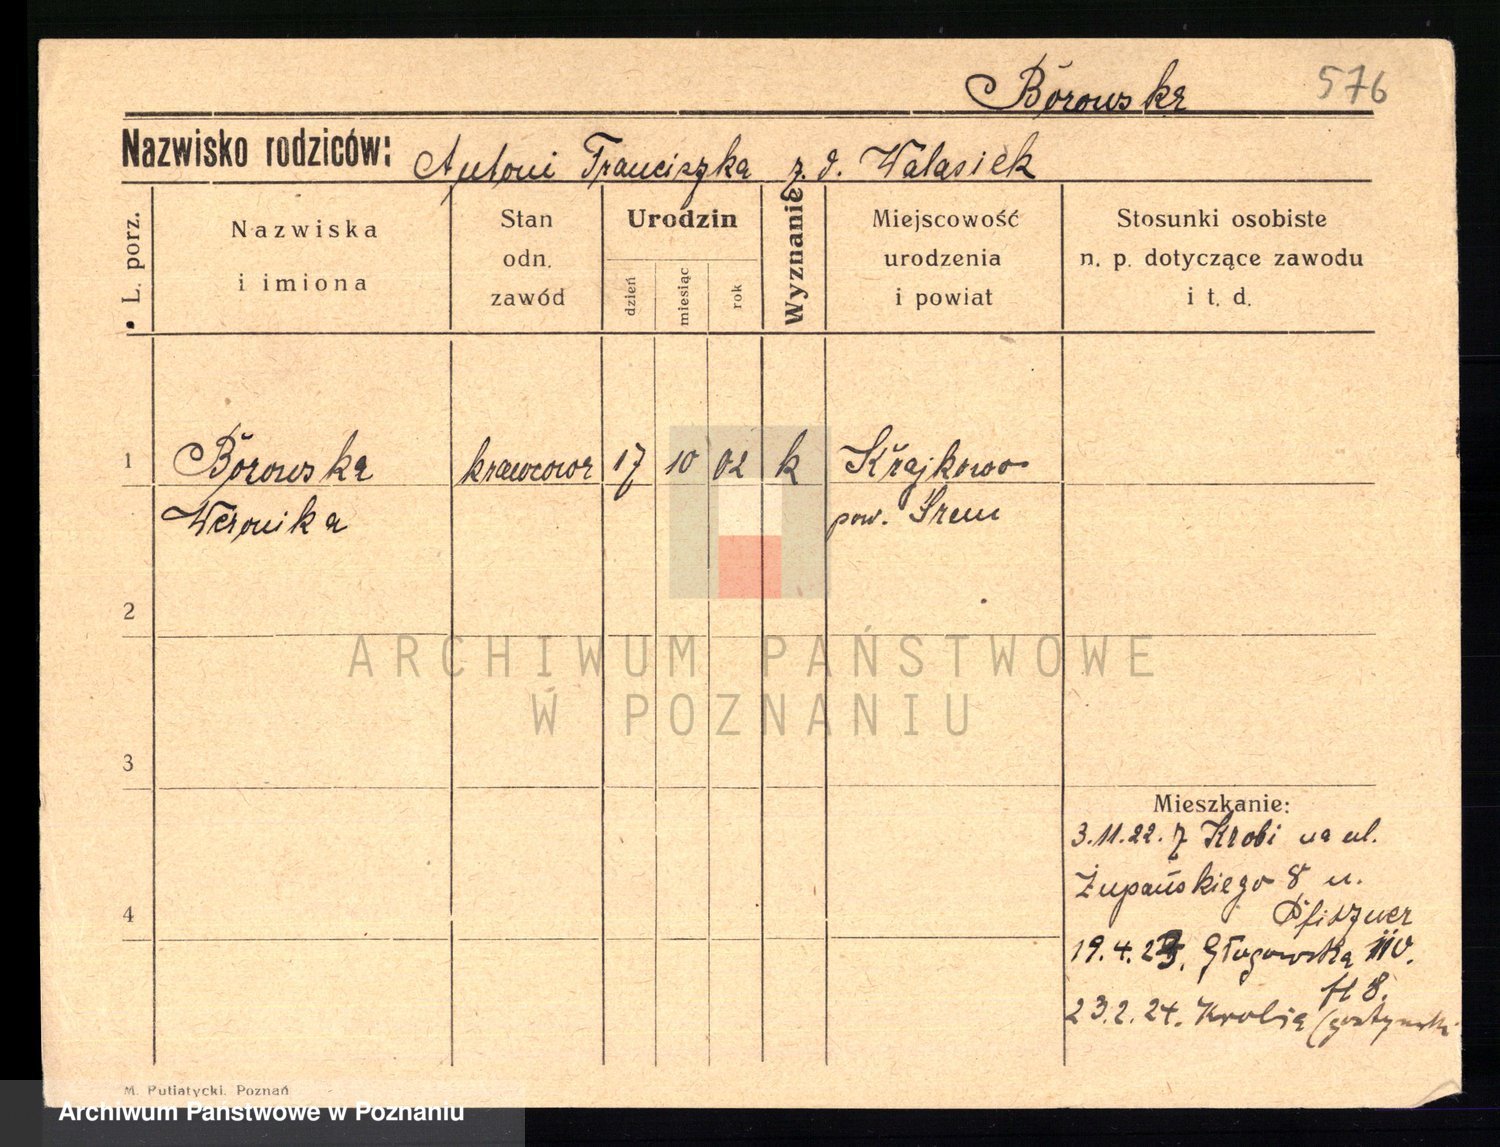 Borowska 576
Nazwisko rodziców: Antoni Franciszka z. d. Walasiek
L. porz.
Nazwiska
i imiona
Stan
odn.
zawód
Urodzin
dzień
miesiąc
rok
Wyznanie
Miejscowość
urodzenia
i powiat
Stosunki osobiste
n. p. dotyczące zawodu
i t. d.
1 Borowska krawcowa 17 10 02 k Krajkowo
Weronika pow. Śrem
2
ARCHIWUM PAŃSTWOWE
W POZNANIU
3
Mieszkanie:
3.11.22. z Krobi na ul.
Żupańskiego 8 u.
Pfitzner
4
19.4.23. Głogowska
23.2.24. Krobia (gostyński
M. Putiatycki, Poznań
Archiwum Państwowe w Poznaniu